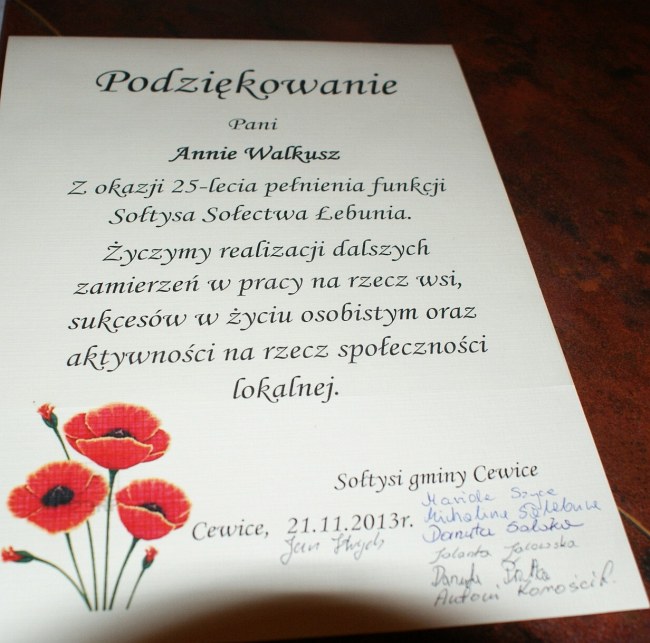 Podziękowanie
Pani
Annie Walkusz
Z okazji 25-lecia pełnienia funkcji
Sołtysa Sołectwa Łebunia.
Życzymy realizacji dalszych
zamierzeń w pracy na rzecz wsi,
sukcesów w życiu osobistym oraz
aktywności na rzecz społeczności
lokalnej.
Sołtysi gminy Cewice
Cewice, 21.11.2013r.
Danuta
Jolanta
Danuta
Antoni